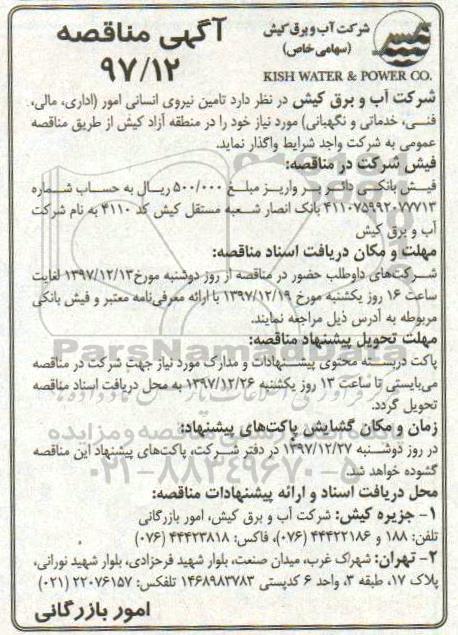 شرکت آب و برق کیش
(سهامی خاص)
KISH WATER & POWER CO.
آگهی مناقصه
۹۷/۱۲
شرکت آب و برق کیش در نظر دارد تامین نیروی انسانی امور (اداری، مالی،
فنی، خدماتی و نگهبانی) مورد نیاز خود را در منطقه آزاد کیش از طریق مناقصه
عمومی به شرکت واجد شرایط واگذار نماید.
فیش شرکت در مناقصه:
فیش بانکی دائر بر واریز مبلغ ۵۰۰/۰۰۰ ریال به حساب شماره
۴۱۱۰۷۵۹۹۲۰۷۷۷۱۳ بانک انصار شعبه مستقل کیش کد ۴۱۱۰ به نام شرکت
آب و برق کیش
مهلت و مکان دریافت اسناد مناقصه:
شرکت‌های داوطلب حضور در مناقصه از روز دوشنبه مورخ ۱۳۹۷/۱۲/۱۳ لغایت
ساعت ۱۶ روز یکشنبه مورخ ۱۳۹۷/۱۲/۱۹ با ارائه معرفی‌نامه معتبر و فیش بانکی
مربوطه به آدرس ذیل مراجعه نمایند.
مهلت تحویل پیشنهاد مناقصه:
پاکت دربسته محتوی پیشنهادات و مدارک مورد نیاز جهت شرکت در مناقصه
می‌بایستی تا ساعت ۱۳ روز یکشنبه ۱۳۹۷/۱۲/۲۶ به محل دریافت اسناد مناقصه
تحویل گردد.
زمان و مکان گشایش پاکت‌های پیشنهاد:
در روز دوشنبه ۱۳۹۷/۱۲/۲۷ در دفتر شرکت، پاکت‌های پیشنهاد این مناقصه
گشوده خواهد شد.
محل دریافت اسناد و ارائه پیشنهادات مناقصه:
۱- جزیره کیش: شرکت آب و برق کیش، امور بازرگانی
تلفن: ۱۸۸ و ۴۴۴۲۲۱۸۶ (۰۷۶)، فاکس: ۴۴۴۲۳۸۱۸ (۰۷۶)
۲- تهران: شهراک غرب، میدان صنعت، بلوار شهید فرحزادی، بلوار شهید نورانی،
پلاک ۱۷، طبقه ۳، واحد ۶ کدپستی ۱۴۶۸۹۸۳۷۸۳ تلفکس: ۲۲۰۷۶۱۵۷ (۰۲۱)
امور بازرگانی
ParsNamadData
۰۲۱-۸۸۳۴۹۶۷۰-۵